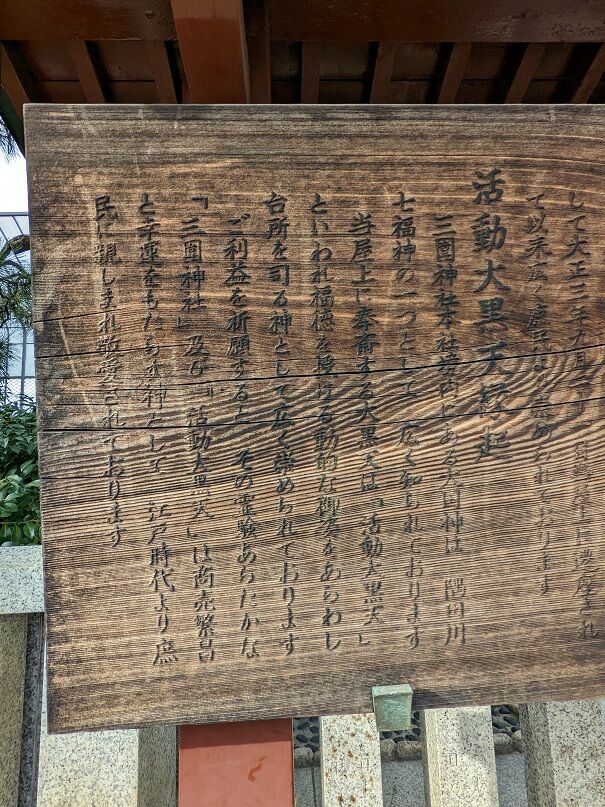 して大正三年九月
て以来広く庶民から崇められております
活動大黒天縁起
三囲神社本社境内にある大国神は 隅田川
七福神の一つとして 広く知られております
当屋上に奉斎する大黒天は「活動大黒天」
といわれ福徳を授ける動的な御姿をあらわし
台所を司る神として広く崇められております
ご利益を祈願すると その霊験あらたかな
「三囲神社」及び「活動大黒天」は商売繁昌
と幸運をもたらす神として 江戸時代より庶
民に親しまれ敬愛されております